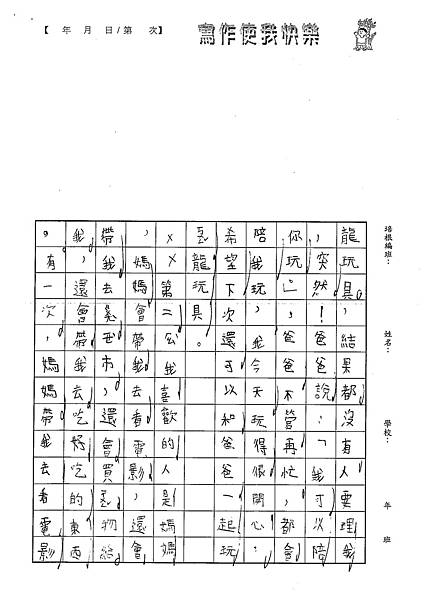 【 年 月 日/第 次】
寫作使我快樂
培根編班：
姓名：
學校：
年 班
龍玩具，結果都沒有人要理我
，突然！爸爸說：「我可以陪
你玩」。爸爸不管再忙，都會
陪我玩，我今天玩得很開心，
希望下次還可以和爸爸一起玩
恐龍玩具。
××第二我喜歡的人，是媽媽
，媽媽會帶我去看電影，還會
帶我去市，還會買物給
我，還會帶我去吃好吃的東西
，有一次，媽媽帶我去看電影